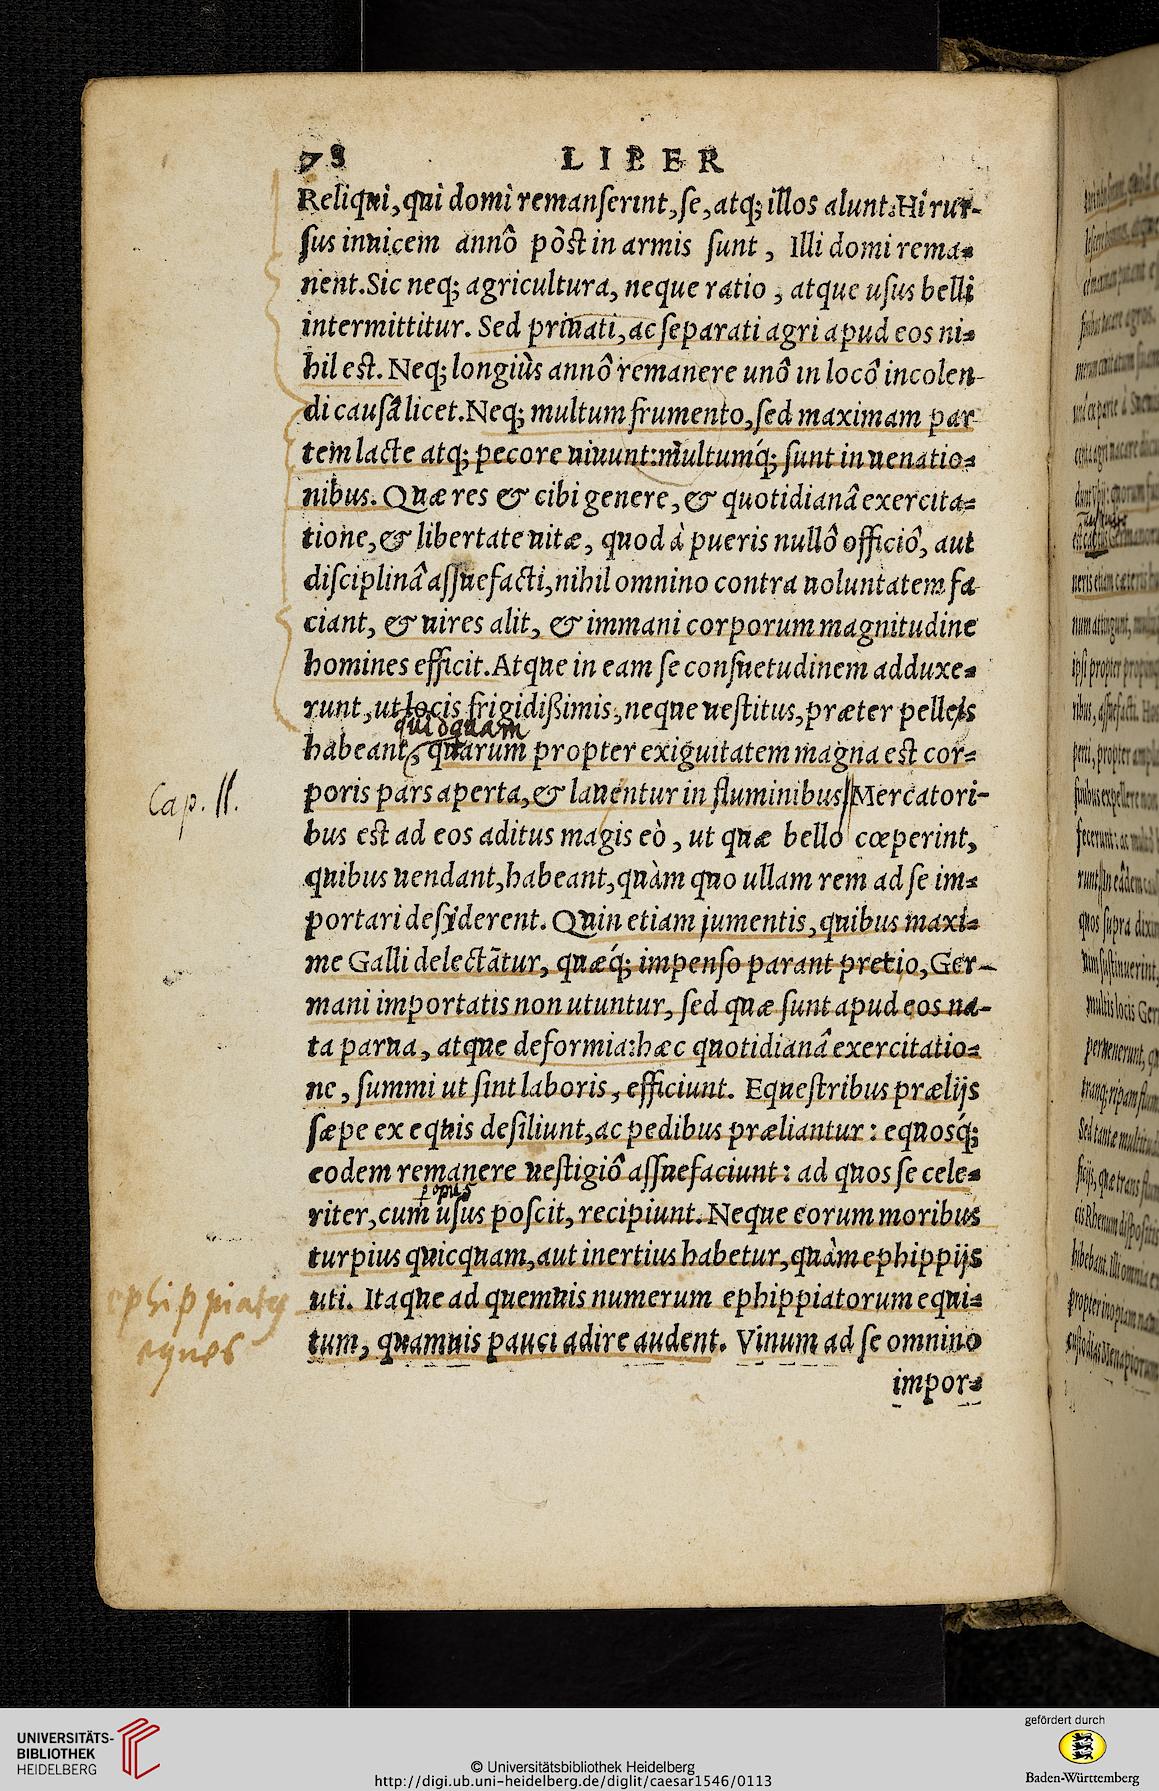 78 LIBER
Reliqui, qui domi remanserint, se, atq; illos alunt: Hi rur-
sus inuicem annô pòst in armis sunt, Illi domi rema-
nent. Sic neq; agricultura, neque ratio, atque usus belli
intermittitur. Sed priuati, ac separati agri apud eos ni-
hil est. Neq; longiùs annô remanere unô in locô incolen-
di causâ licet. Neq; multum frumento, sed maximam par
tem lacte atq; pecore uiuunt: multumq́; sunt in uenatio-
nibus. Quæ res & cibi genere, & quotidianâ exercita-
tione, & libertate uitæ, quod à pueris nullô officiô, aut
disciplinâ assuefacti, nihil omnino contra uoluntatem fa
ciant, & uires alit, & immani corporum magnitudine
homines efficit. Atque in eam se consuetudinem adduxe-
runt, ut locis frigidißimis, neque uestitus, præter pelleis
quidquam
habeant, quarum propter exiguitatem magna est cor-
Cap. II.
poris pars aperta, & lauentur in fluminibus || Mercatori-
bus est ad eos aditus magis eò, ut quæ bello cœperint,
quibus uendant, habeant, quàm quo ullam rem ad se im-
portari desyderent. Quin etiam jumentis, quibus maxi-
me Galli delectãtur, quæq́; impenso parant pretio, Ger-
mani importatis non utuntur, sed quæ sunt apud eos na-
ta parua, atque deformia: hæc quotidianâ exercitatio-
ne, summi ut sint laboris, efficiunt. Equestribus prælijs
sæpe ex equis desiliunt, ac pedibus præliantur: equosq́;
eodem remanere uestigiô assuefaciunt: ad quos se cele-
opus
riter, cum usus poscit, recipiunt. Neque eorum moribus
turpius quicquam, aut inertius habetur, quàm ephippijs
ephippiatus
uti. Itaque ad quemuis numerum ephippiatorum equi-
eques
tum, quamuis pauci adire audent. Vinum ad se omnino
impor-
UNIVERSITÄTS-
BIBLIOTHEK
HEIDELBERG
© Universitätsbibliothek Heidelberg
http://digi.ub.uni-heidelberg.de/diglit/caesar1546/0113
gefördert durch
Baden-Württemberg